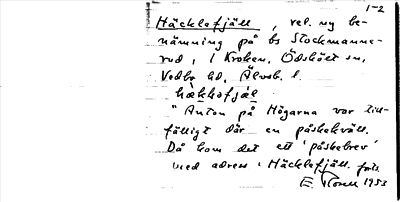 1-2
Häcklefjäll, rel. ny be-
nämning på bs Stockmanne-
rud, i Kroken, Ödskölt sn,
Vedbo hd, Älvsb. l.
häkkəfjäl
"Anton på Högarna var till-
fälligt där en påskekväll.
Då kom det ett 'påskebrev'
med adress: Häcklefjäll.
E. 1953